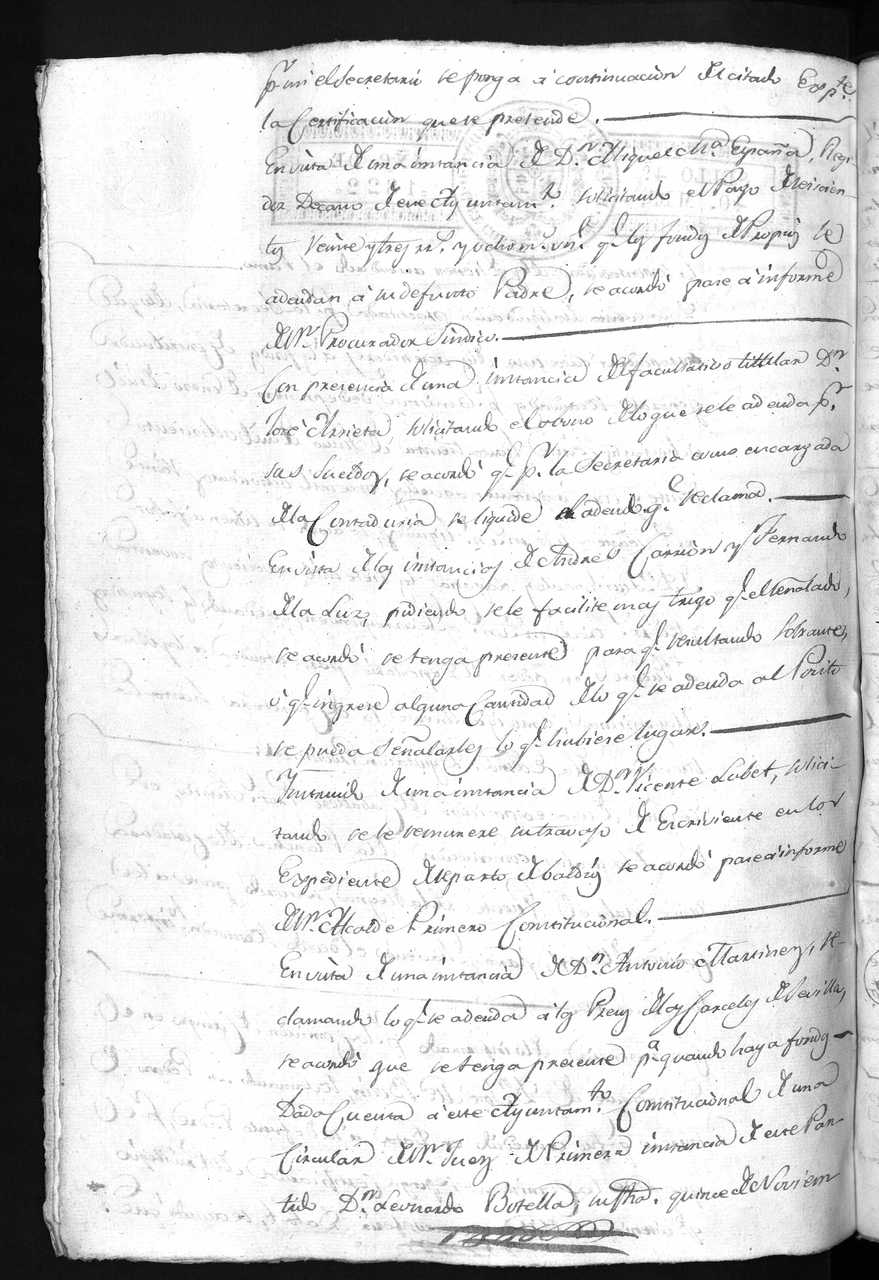 pr. mi el Secretario se ponga a continuacion del citado Expte.
la Certificacion que se pretende.
En vista de una instancia de Dn. Miguel Ma. España, Regi
dor Decano de este Ayuntamto. solicitando el Pago de seiscien
tos veinte y tres rs. y ocho ms. vn. qe. los fondos de Propios le
adeudan á su defunto Padre, se acordó pase á informe
del Sr. Procurador Sindico.
Con presencia de una instancia del facultativo titular Dn.
José Arrieta, solicitando el de lo que se le adeuda pr.
sus Sueldos, se acordó qe. pr. la Secretaria como encargada
de la Contaduria se liquide el adeudo qe. reclama.
En vista de las instancias de Andres Carrion y Fernando
de la Luz, pidiendo se le facilite mas trigo qe. el señalado,
se acordó se tenga presente para qe. resultando sobrante,
ó qe. ingrese alguna Cantidad de lo qe. se adeuda al Posito
se pueda Señalarles lo qe. hubiere lugar.
Instruido de una instancia de Dn. Vicente Lubet, solici-
tando se le remunere su travajo de Escriviente en los
Expediente de reparto de baldios se acordó pase á informe
del Sr. Alcalde Primero Constitucional.
En vista de una instancia de Dn. Antonio Martinez, re-
clamando lo qe. se adeuda á los Presos de las Carceles de Sevilla,
se acordó que se tenga presente pa. quando haya fondos
Dada Cuenta á este Ayuntamto. Constitucional de una
Circular del Sr. Juez de Primera instancia de este Par-
tido Dn. Leonardo Botella, su fha. quince de Noviem